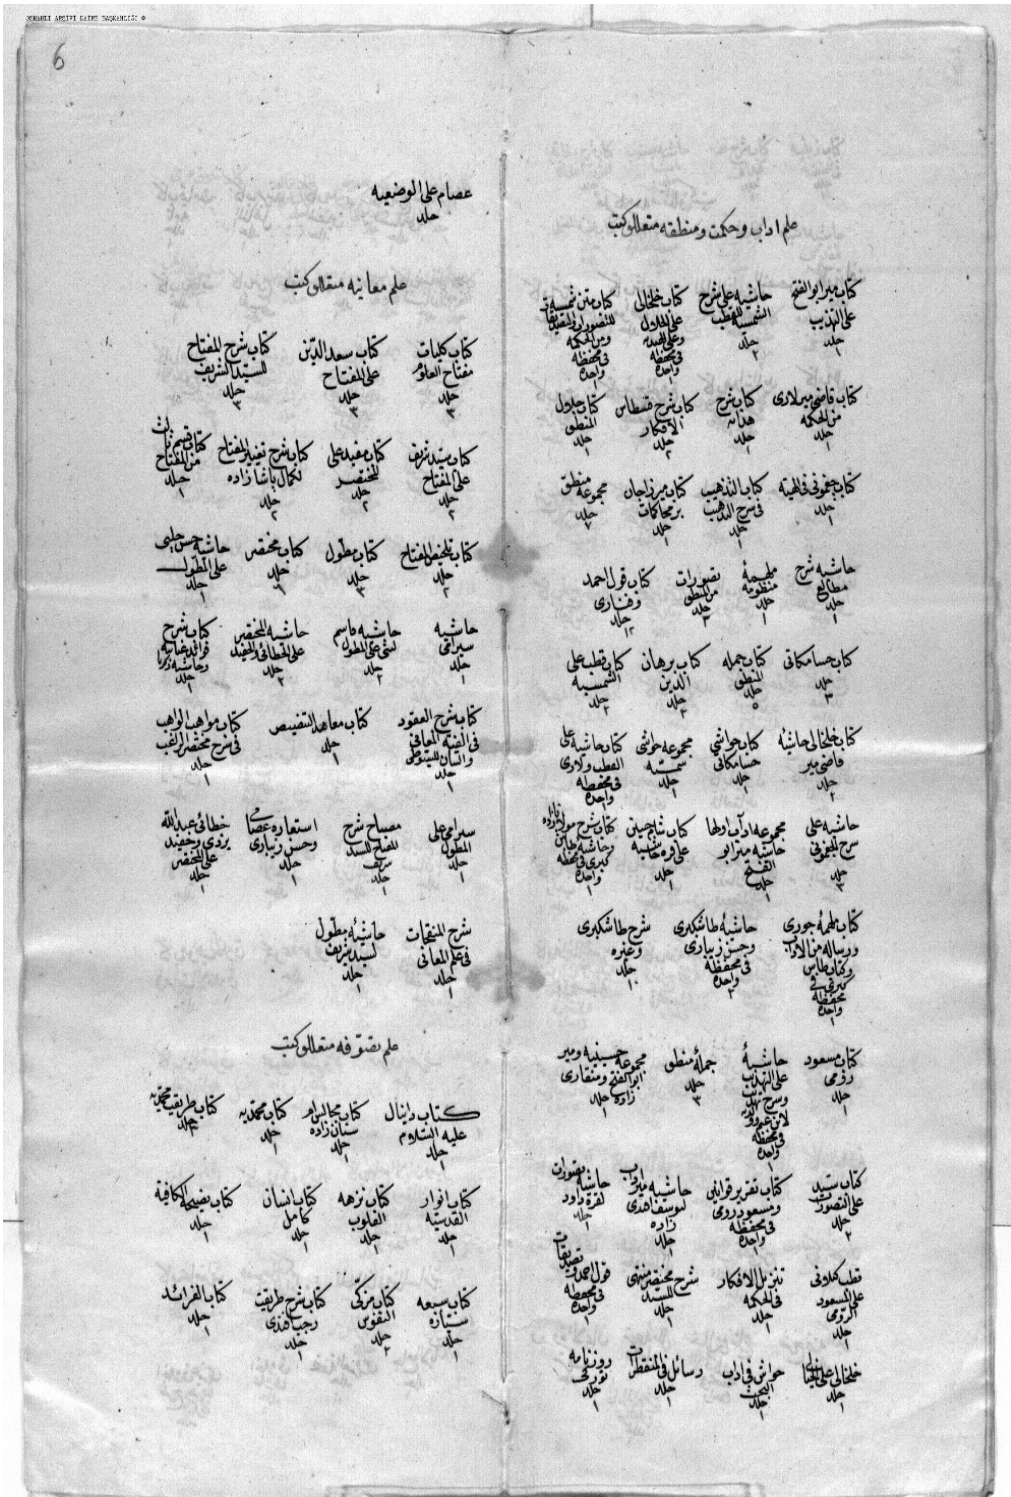 OSMANLI ARŞİVİ DAİRE BAŞKANLIĞI
6
علم اداب و حكمت و منطقه متعلق كتب
كتاب مير ابو الفتح
على التهذيب
جلد
١
حاشيه على شرح
الشمسيه للقطب
جلد
٢
كتاب خلخالى
على الجلال
فى محفظه
واحده
١
كتاب متن شمسيه
ومن الحكمه
فى محفظه
واحده
١
كتاب قاضى مير لارى
من الحكمه
جلد
١
كتاب شرح
هدايه
جلد
١
كتاب شرح قسطاس
الافكار
جلد
٢
كتاب جلال
المنطق
جلد
١
كتاب جغمونى فى الهيئه
جلد
١
كتاب التذهيب
فى شرح التهذيب
جلد
١
كتاب ميرزاجان
بر محاكمات
جلد
١
مجموعه منطق
جلد
٧
حاشيه شرح
مطالع
جلد
١
ملهمه
منظومه
جلد
١
تصورات
من المنطق
جلد
٣
كتاب قول احمد
وفنارى
جلد
١٢
كتاب حسامكاتى
جلد
٣
كتاب جمله
المنطق
جلد
٥
كتاب برهان
الدين
جلد
٢
كتاب قطب على
الشمسيه
جلد
٢
كتاب خلخالى حاشيه
قاضى مير
جلد
٢
كتاب حواشى
حسامكاتى
جلد
١
مجموعه حواشى
شمسيه
جلد
١
كتاب حاشيه على
القطب ولارى
فى محفظه
واحده
١
حاشيه على
شرح الجغمونى
جلد
٣
مجموعه اداب اولها
حاشيه مير ابو
الفتح
جلد
١
كتاب شاه حسين
على قره حاشيه
جلد
١
كتاب شرح
وحاشيه طاش
كبرى فى محفظه
واحده
١
كتاب ملهمه جورى
ورساله من الاداب
وكتاب طاش
كبرى فى
محفظه
واحده
١
حاشيه طاشكبرى
وحسن زيبارى
فى محفظه
واحده
٢
شرح طاشكبرى
وغيره
جلد
١٠
كتاب مسعود
رومى
جلد
١
حاشيه
على التهذيب
وشرح تهذيب
فى محفظه
واحده
١
جمله منطق
جلد
٣
مجموعه حسينيه ومير
ابو الفتح ومنقارى
زاده
جلد
١
كتاب سيد
على التصورات
جلد
٢
كتاب تقرير قوانين
ومسعود رومى
فى محفظه
واحده
١
حاشيه مير اداب
ليوسف افندى
زاده
جلد
١
حاشيه تصورات
لقره داود
جلد
١
قطب كيلانى
على المسعود
الرومى
جلد
١
تنزيل الافكار
فى الحكمه
جلد
١
شرح مختصر منتهى
للسيد
جلد
١
تصديقات
قول احمد و
فى محفظه
واحده
١
خلخالى على الخيالى
جلد
١
حواشى فى اداب
البحث
جلد
١
رسائل فى المقنطرات
جلد
١
روزنامه
جلد
١
عصام على الوضعيه
جلد
علم معانيه متعلق كتب
كتاب كليات
مفتاح العلوم
جلد
٣
كتاب سعد الدين
على المفتاح
جلد
٣
كتاب شرح المفتاح
للسيد الشريف
جلد
٣
كتاب سيد شريف
على المفتاح
جلد
٢
كتاب مفيد على
المختصر
جلد
٢
كتاب شرح تغيير المفتاح
لكمال پاشا زاده
جلد
٢
كتاب قسم ثالث
من المفتاح
جلد
١
كتاب تلخيص المفتاح
جلد
٢
كتاب مطول
جلد
٣
كتاب مختصر
جلد
٦
حاشيه حسن چلبى
على المطول
جلد
١
حاشيه
سيرامى
جلد
١
حاشيه قاسم
ليثى على المطول
جلد
٢
حاشيه المختصر
على الخطائى والحفيد
جلد
٢
كتاب شرح
فرائد غياثيه
وحاشيه زكريا
جلد
١
كتاب شرح العقود
فى الفيه المعانى
والبيان للسيوطى
جلد
١
كتاب معاهد التنصيص
جلد
١
كتاب مواهب الواهب
فى شرح مختصر
جلد
١
سيرامى على
المطول
جلد
١
مصباح شرح
المفتاح للسيد
شريف
جلد
١
استعاره عصامى
وحسن زيبارى
جلد
١
خطائى عبد الله
يزدى وحفيد
على المختصر
جلد
١
شرح المنقحات
فى علم المعانى
جلد
١
حاشيه مطول
لسيد شريف
جلد
١
علم تصوفه متعلق كتب
كتاب دانيال
عليه السلام
جلد
١
كتاب مجالس
سنان زاده
جلد
١
كتاب محمديه
جلد
١
كتاب طريقت محمديه
جلد
كتاب انوار
القدسيه
جلد
١
كتاب نزهه
القلوب
جلد
١
كتاب انسان
كامل
جلد
١
كتاب نصيحة الكافية
جلد
١
كتاب سبعه
سياره
جلد
١
كتاب مزكى
النفوس
جلد
٢
كتاب شرح طريقت
رجب افندى
جلد
١
كتاب الفرائد
جلد
١